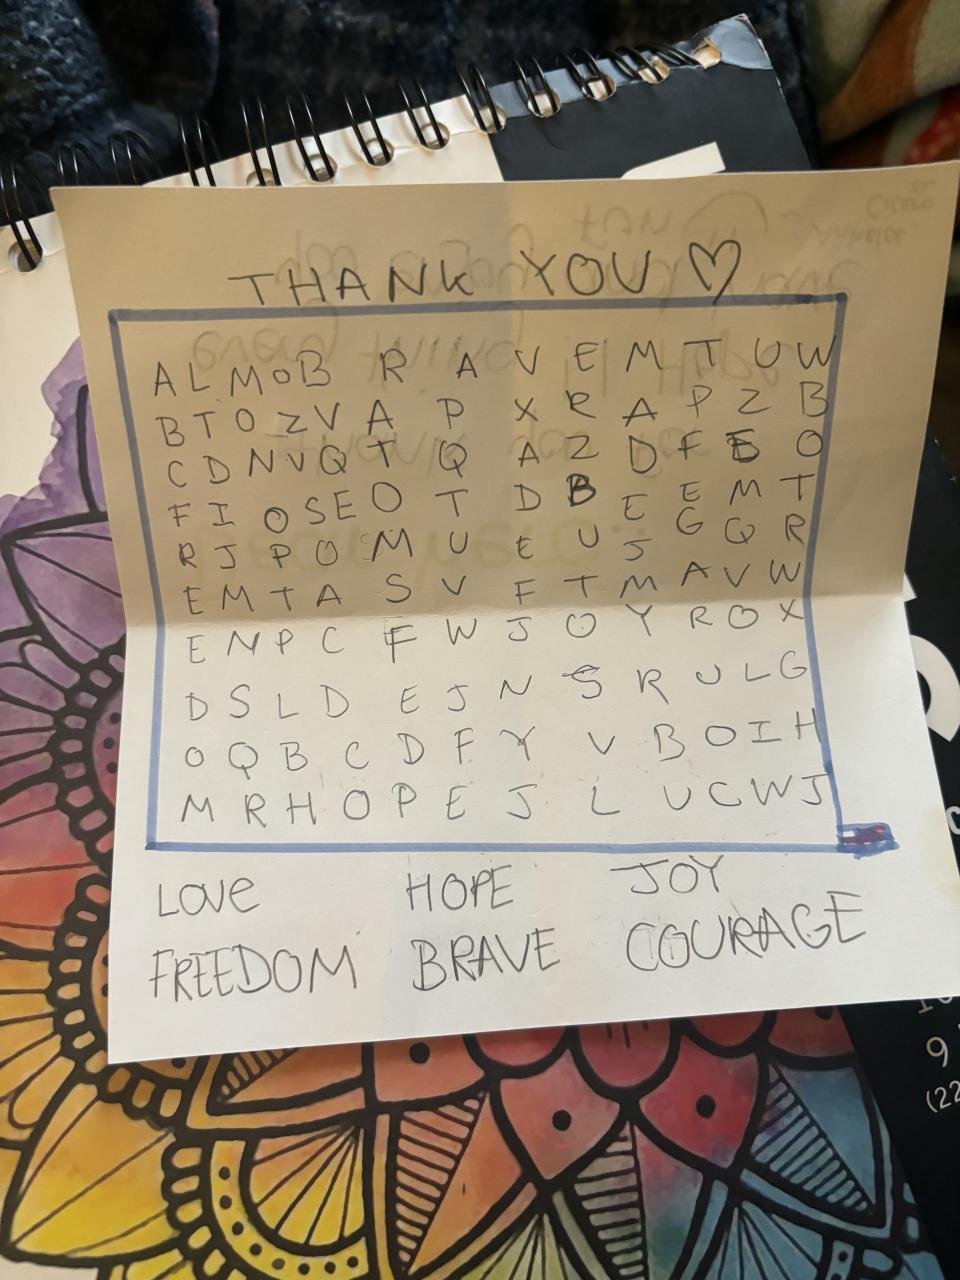 THANK YOU ♡
A L M O B R A V E M T U W
B T O Z V A P X R A P Z B
C D N V Q T Q A Z D F E O
F I O S E O T D B E E M T
R J P O M U E U J G Q R
E M T A S V F T M A V W
E N P C F W J O Y R O X
D S L D E J N S R U L G
O Q B C D F Y V B O I H
M R H O P E J L U C W J
LOVE HOPE JOY
FREEDOM BRAVE COURAGE
9
(22